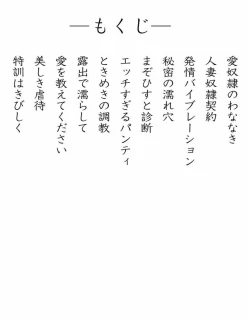 ―もくじ―
愛奴隷のわななき
人妻奴隷契約
発情バイブレーション
秘密の濡れ穴
まぞひすと診断
エッチすぎるパンティ
ときめきの調教
露出で濡らして
愛を教えてください
美しき虐待
特訓はきびしく